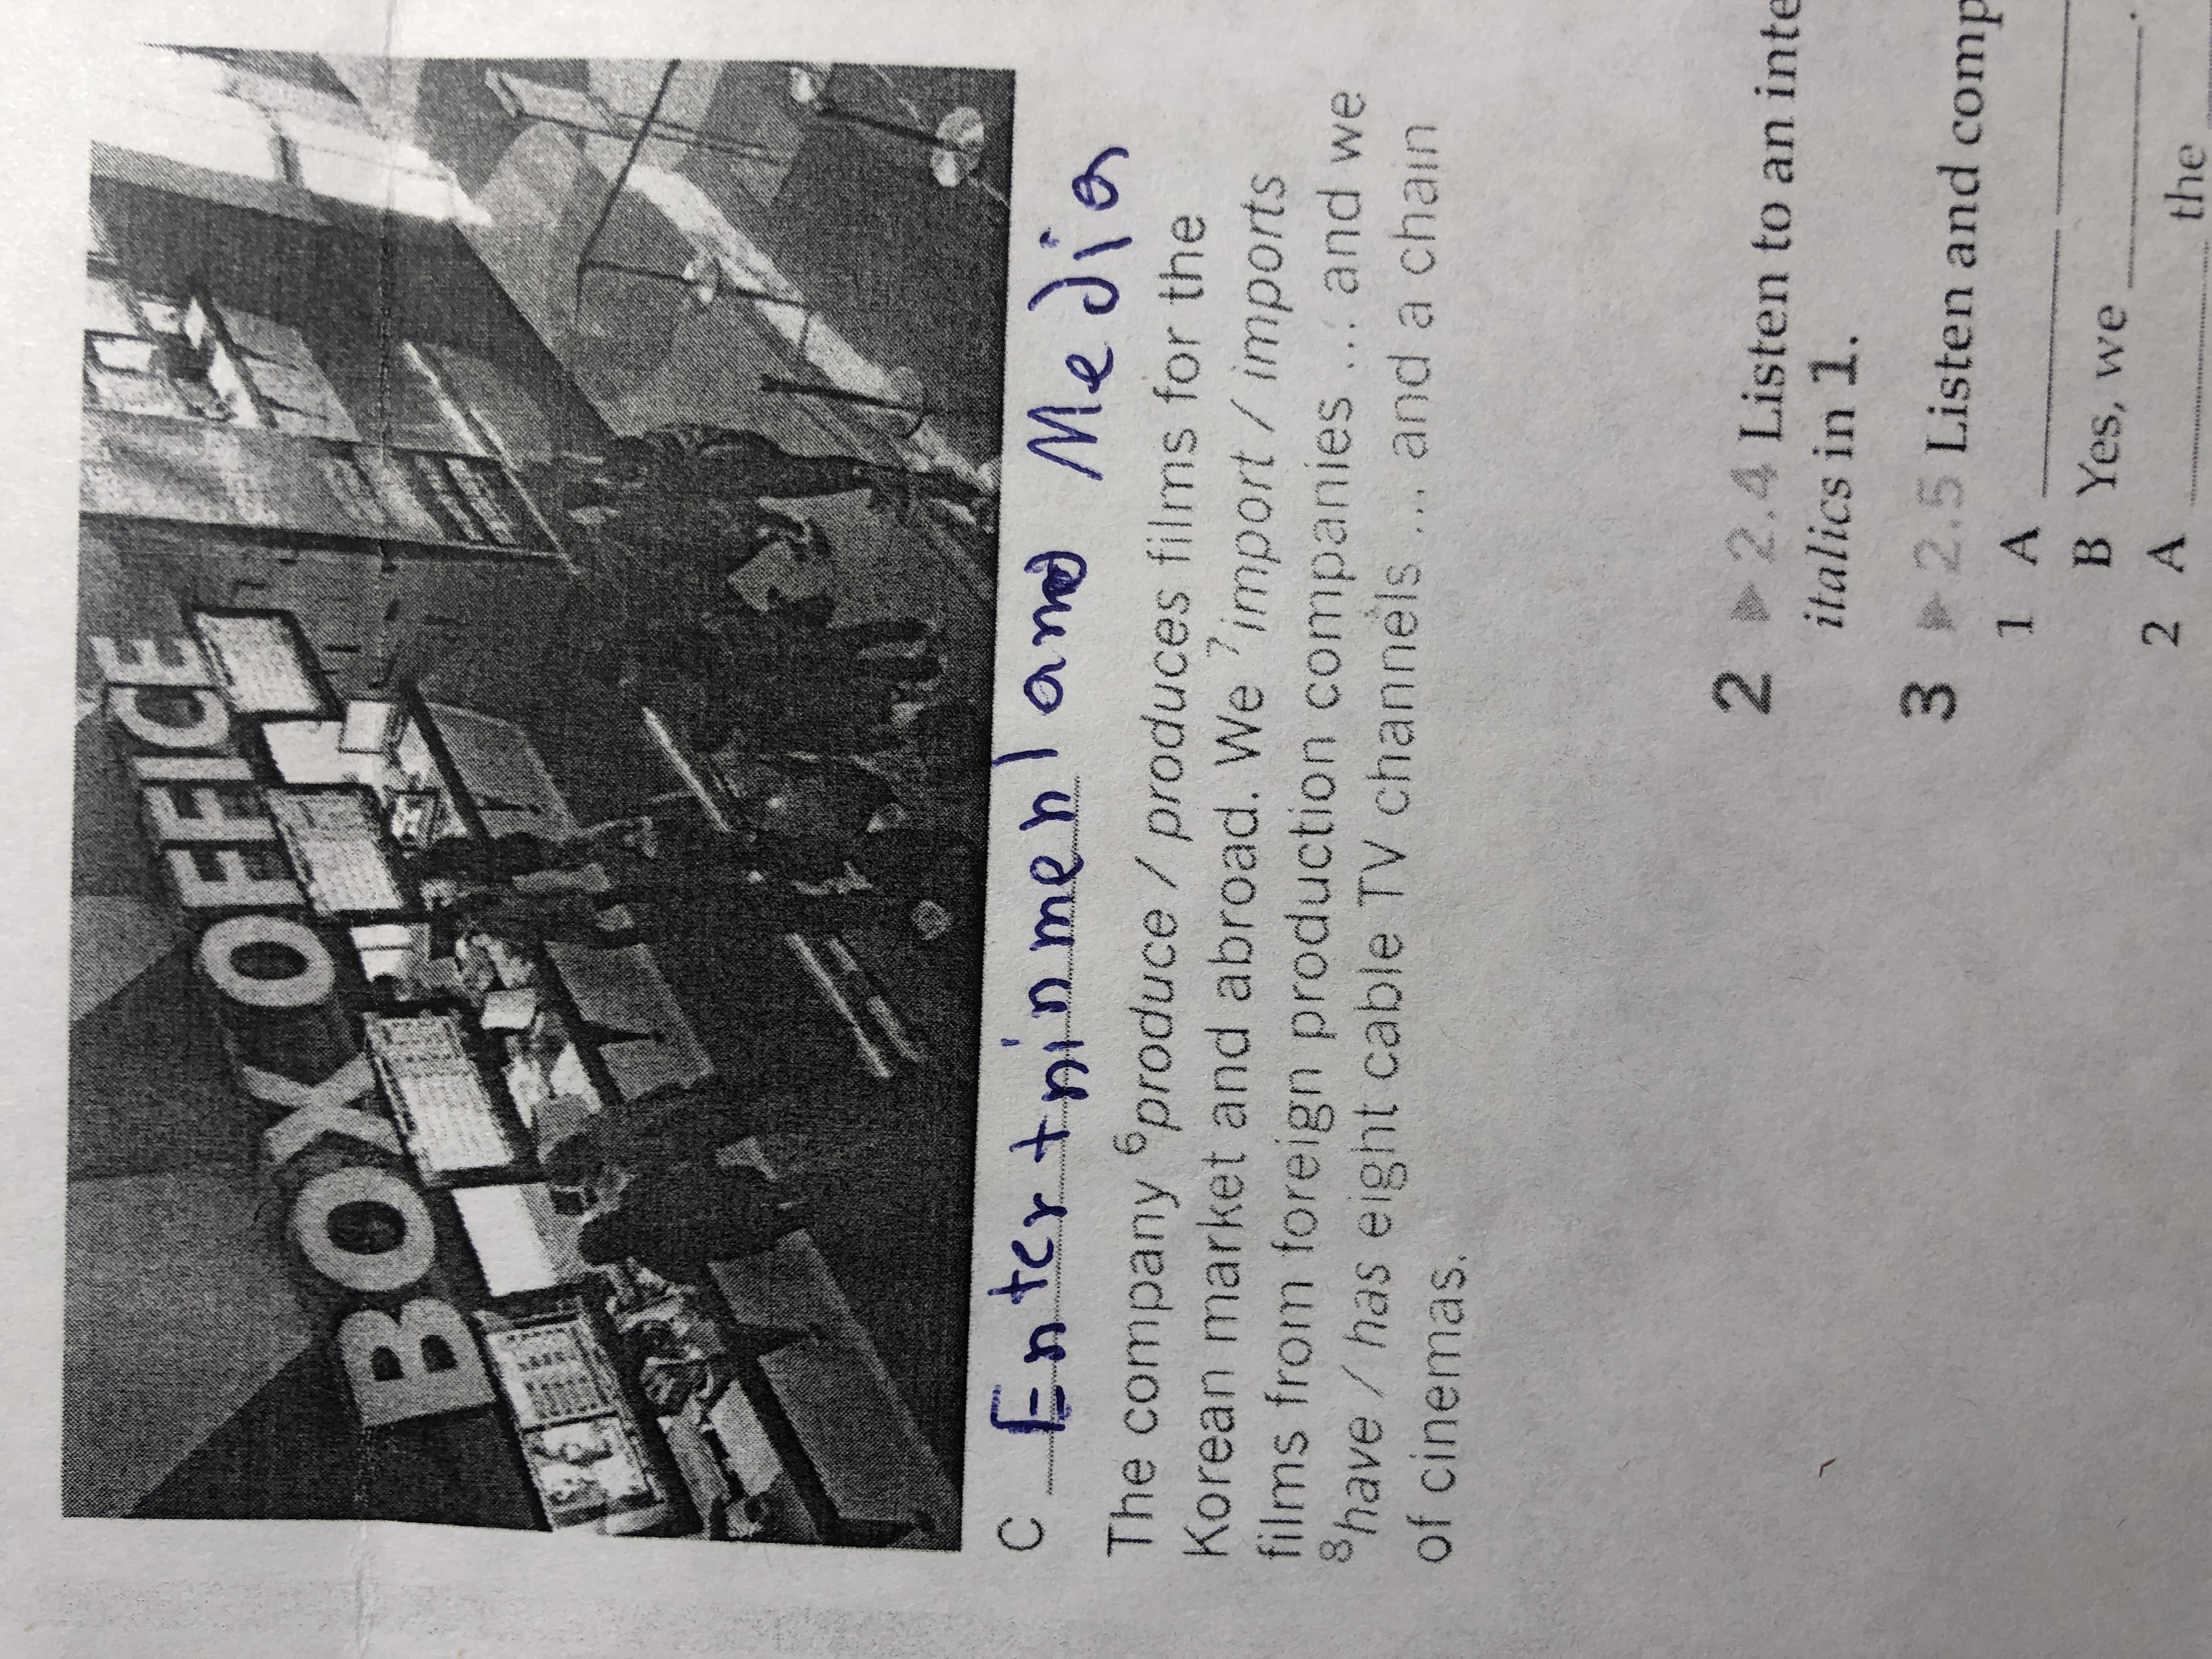 BOX OFFICE
C Entertninment and Media
The company 6produce / produces films for the
Korean market and abroad. We 7import / imports
films from foreign production companies ... and we
8have / has eight cable TV channels ... and a chain
of cinemas.
2 ▶ 2.4 Listen to an inte
italics in 1.
3 ▶ 2.5 Listen and comp
1 A
B Yes, we ____.
2 A ____ the